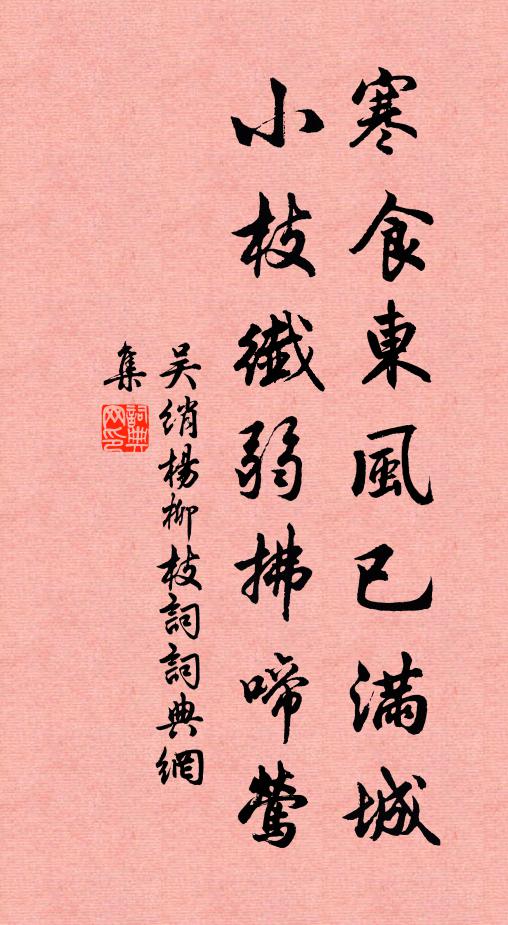 寒食東風已滿城
小枝纖弱拂啼鶯
吴绡楊柳枝詞詞典網
集
詞典
网印